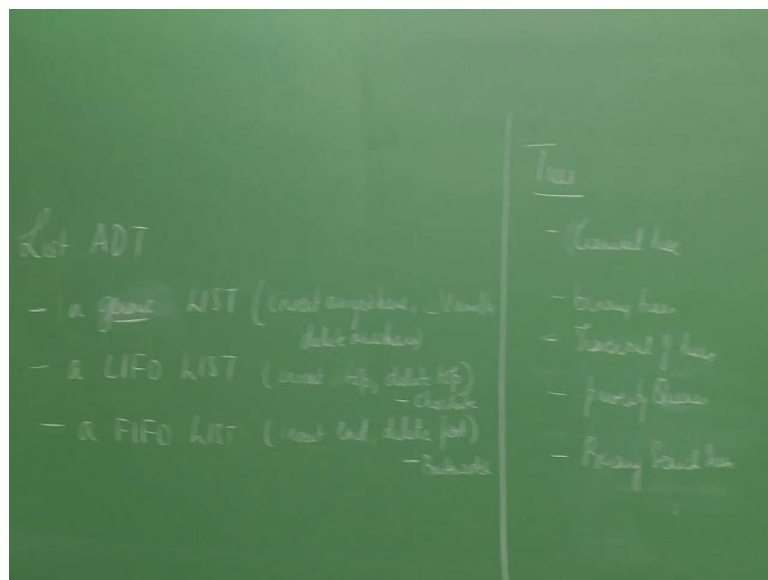 List ADT
- a LIST (insert anywhere,
delete anywhere)
- a LIFO LIST (insert top, delete top)
- a FIFO LIST (insert end, delete
Trees
- General tree
- binary trees
- Traversal of trees
- priority Queues
- Binary Search Tree